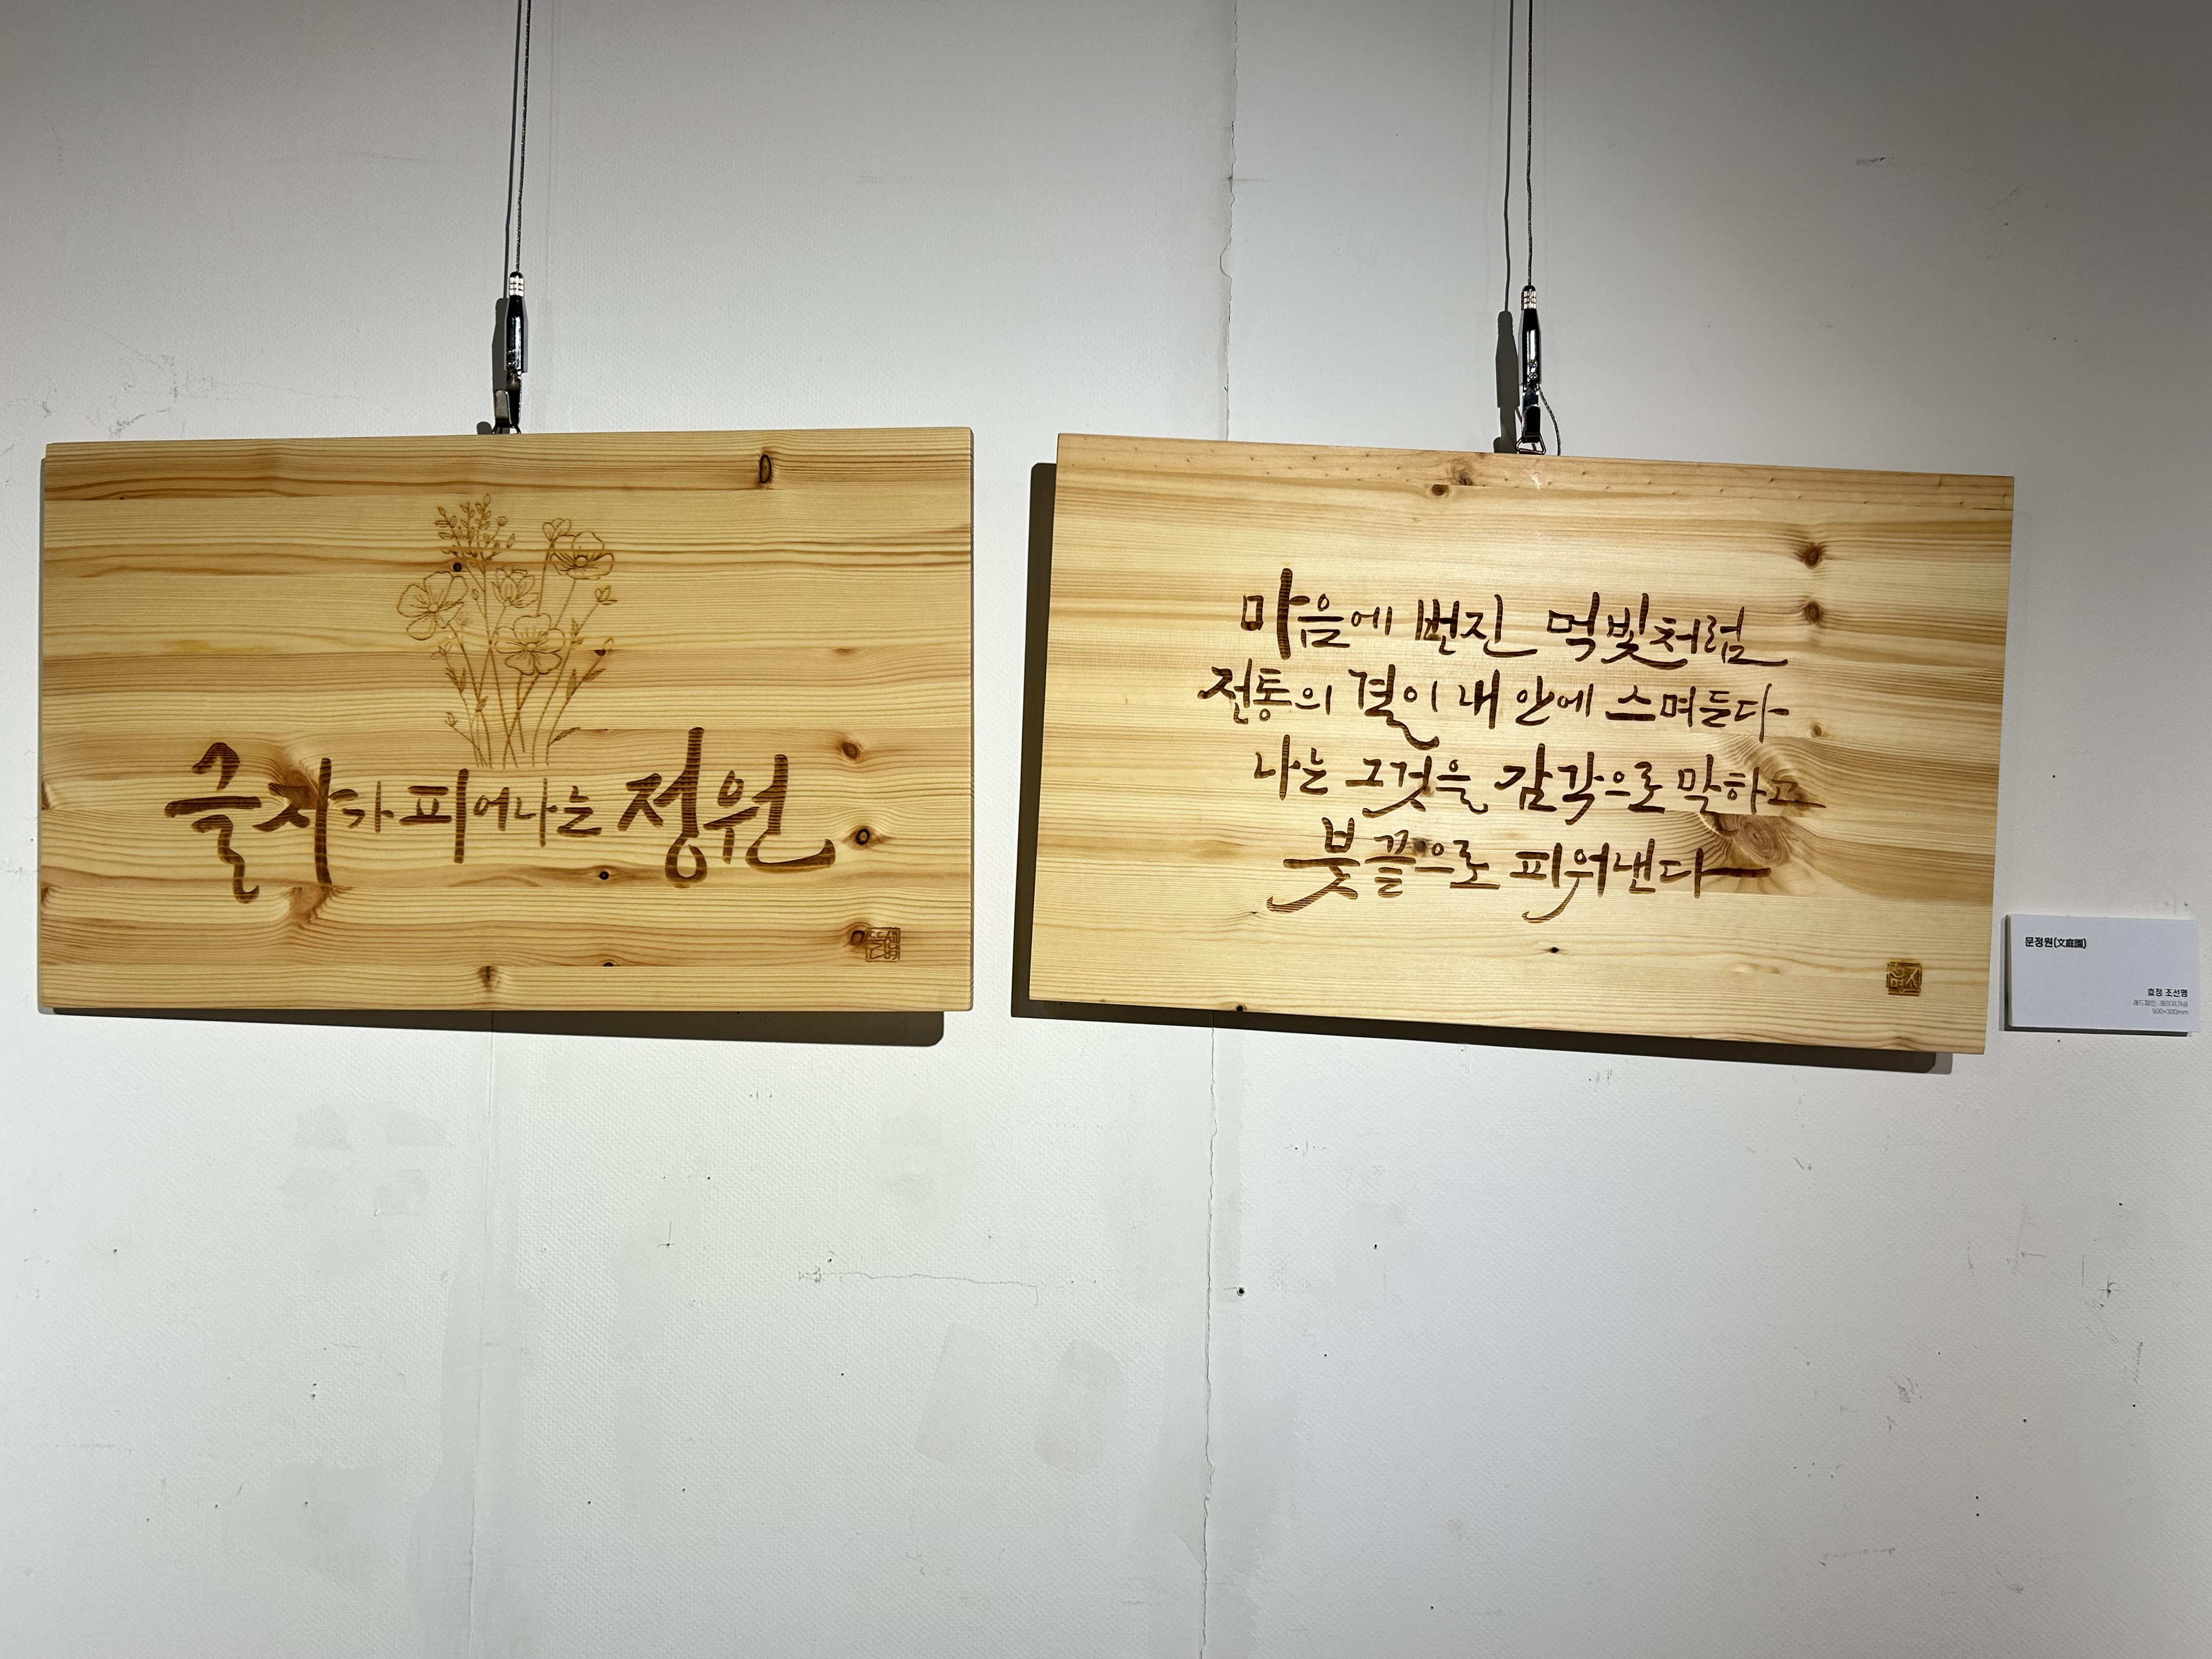 글자가 피어나는 정원
마음에 번진 먹빛처럼
전통의 결이 내 안에 스며든다
나는 그것을 감각으로 말하고
붓끝으로 피워낸다
문정원(文庭園)
효정 조선명
레드파인, 레이저가공
500×300mm